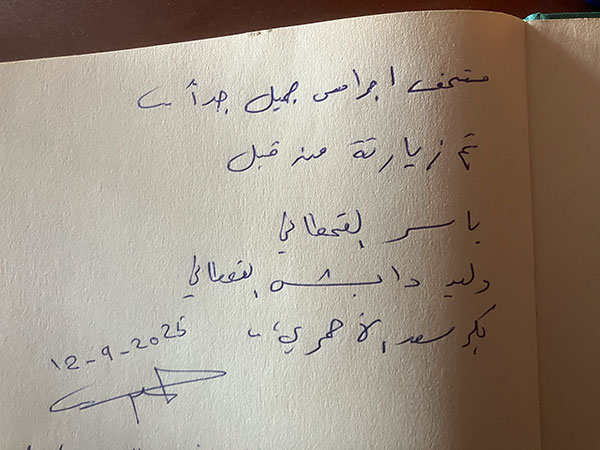 متحف اجراس جميل جداً
تم زيارتة من قبل
ياسر القحطاني
وليد القحطاني
بكر سعد الأحمري
12-9-2025